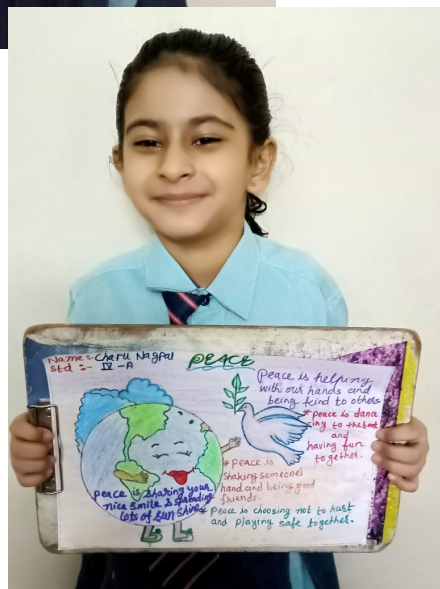 Name:- Charu Nagpal
Std :- IV -A
PEACE
Peace is helping
with our hands and
being kind to others
* Peace is danc
ing to the beat
and
having fun
together.
* Peace is
shaking someone's
hand and being good
friends.
Peace is sharing your
nice smile & spreading
lots of sun shine
* Peace is choosing not to hurt
and playing safe together.